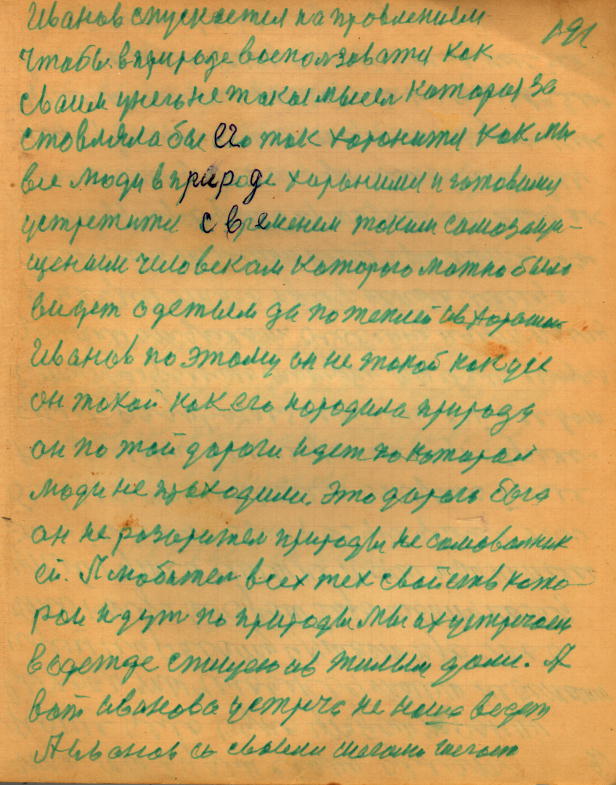 191
Иванов спускается направлением
чтобы в природе воспользоватся как
сваим у него не такая мысел которая за
стовляла бы его так хоронится как мы
все люди в природе хоронимся и готовимся
устретится с временем таким самозащи-
щеным человекам которого можно было
видет одетым да потеплей и в хорошим
Иванов поэтому он не такой как усе
он такой как его нородила природа
он по той дороги идет по которай
люди не проходили. Это дорога бога
он не разоритель природы не самовольник
ей. А любител всех тех свойств кото
рои идут по природы Мы их устричаем
в одежде с пищею и в жилым доми. А
вот Иванова устреча не наша ведет
А Иванов со своеми шагами шегает